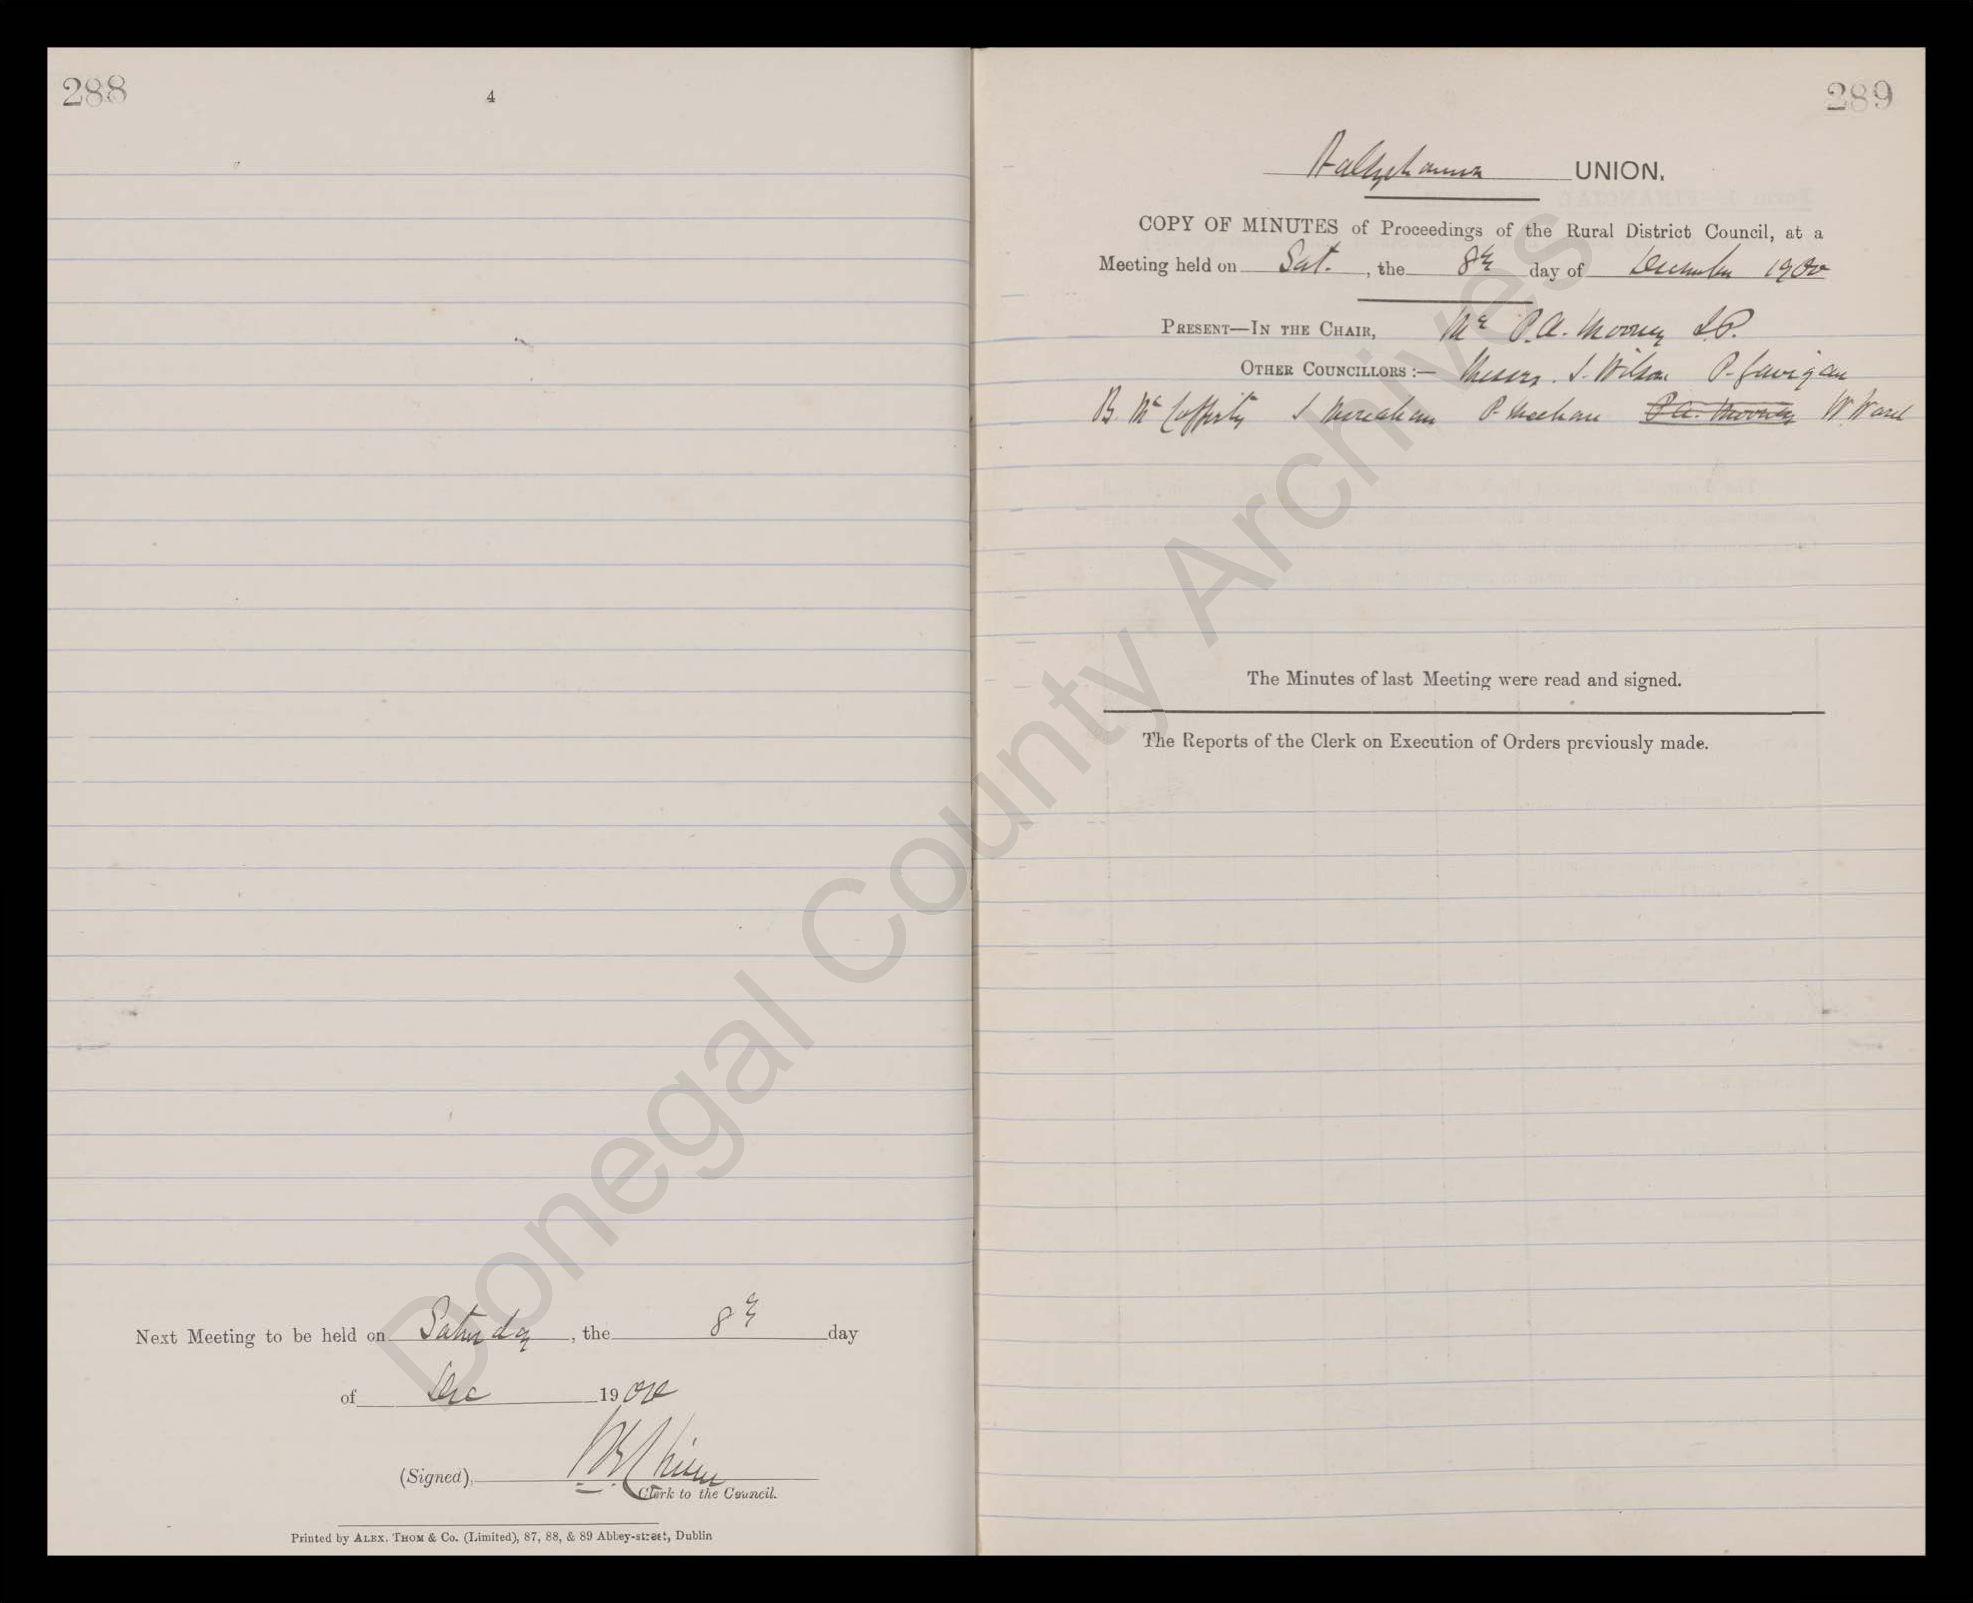 288
4
Next Meeting to be held on Saturday, the 8th day
of Dec 1900
(Signed),
Clerk to the Council.
Printed by ALEX. THOM & Co. (Limited), 87, 88, & 89 Abbey-street, Dublin
289
Ballyshannon UNION.
COPY OF MINUTES of Proceedings of the Rural District Council, at a
Meeting held on Sat., the 8th day of December 1900
PRESENT—IN THE CHAIR, Mr P.A. Mooney J.P.
OTHER COUNCILLORS :— Messrs. J. Wilson P. Gavigan
B. McCafferty J. P. Meehan P.A. Mooney W. Ward
The Minutes of last Meeting were read and signed.
The Reports of the Clerk on Execution of Orders previously made.
Donegal County Archives